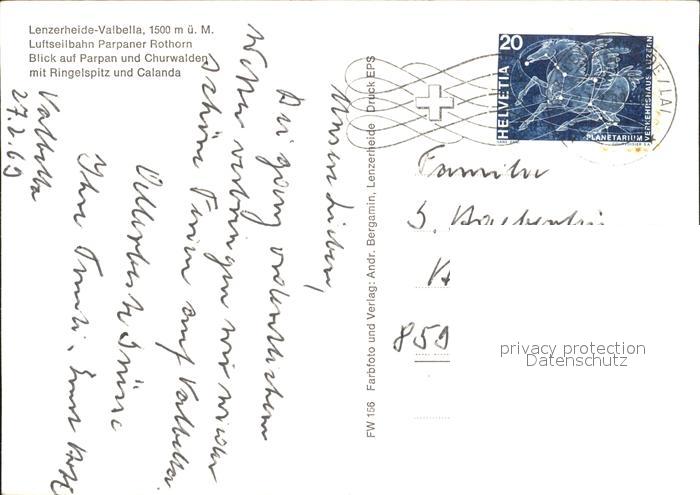 Lenzerheide-Valbella, 1500 m ü. M.
Luftseilbahn Parpaner Rothorn
Blick auf Parpan und Churwalden
mit Ringelspitz und Calanda
Valbella
27.2.69
Unsere Lieben,
Bei ganz ordentlichem
Wetter verbringen wir wieder
schöne Ferien auf Valbella.
Allerbeste Grüsse
Ihre Ernst
FW 156 Farbfoto und Verlag: Andr. Bergamin, Lenzerheide Druck EPS
20
HELVETIA
PLANETARIUM
VERKEHRSHAUS LUZERN
Familie
859
privacy protection
Datenschutz